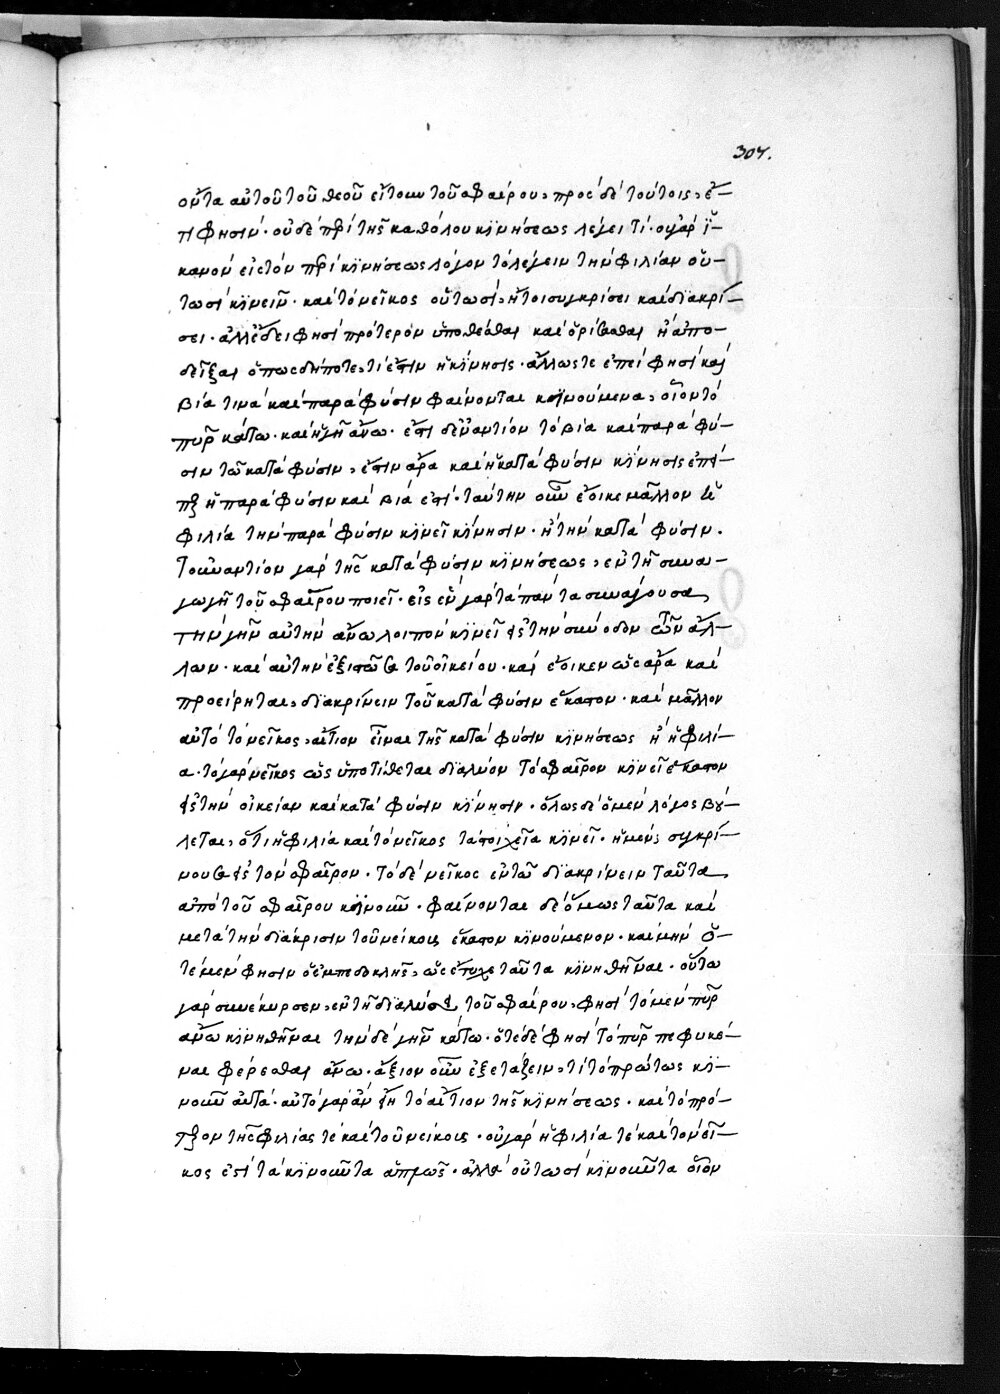 307.
ὄντα αὐτοῦ τοῦ θεοῦ εἴτουν τοῦ σφαίρου, προς δὲ τούτοις, ἔ-
τι φησίν· οὐδὲ περὶ τῆς καθόλου κϊνήσεως λέγει τί· οὐ γὰρ ἵ-
κανον εἰς τὸν περὶ κϊνήσεως λόγον τὸ λέγειν τὴν φιλίαν οὕ-
τωσὶ κϊνεῖν· καὶ τὸ νεῖκος οὕτωσί, ἤτοι συγκρίσει καὶ διακρί-
σει· ἀλλ' ἔδει φησὶ πρότερον ὑποθέσθαι καὶ ὁρίσασθαι ἢ ἀπο-
δεῖξαι ὅπως δήποτε, τί ἐστιν ἡ κίνησις· ἄλλως τε ἐπεὶ φησὶ καὶ
βία τινὰ καὶ παρὰ φύσιν φαίνονται κϊνούμενα, οἷον τὸ
πῦρ κάτω· καὶ ἡ γῆ ἄνω· ἔστι δ' ἐναντίον τὸ βία καὶ παρὰ φύ-
σιν τῶ κατὰ φύσιν, ἔστιν ἄρα καὶ ἡ κατὰ φύσιν κίνησις ἐπεί-
περ ἡ παρὰ φύσιν καὶ βία ἐστί· ταύτην οὖν ἔοικε μᾶλλον ἡ
φιλία τὴν παρὰ φύσιν κϊνεῖ κίνησιν· ἢ τὴν κατὰ φύσιν.
Τοὐναντίον γὰρ τῆς κατὰ φύσιν κϊνήσεως, ἐν τῆ συνα-
γωγῆ τοῦ σφαίρου ποιεῖ· εἰς ἓν γὰρ τὰ πάντα συνάγουσα,
τὴν γῆν αὐτὴν ἄνω λοιπὸν κϊνεῖ εἰς τὴν σύνοδον τῶν ἄλ-
λων· καὶ αὐτὴν ἐξιστῶσα τοῦ οἰκείου· καὶ ἔοικεν ὡς ἄρα καὶ
προείρηται, διακρίνειν τοῦ κατὰ φύσιν ἕκαστον· καὶ μᾶλλον
αὐτὸ τὸ νεῖκος, αἴτιον εἶναι τῆς κατὰ φύσιν κϊνήσεως ἢ ἡ φιλί-
α· τὸ γὰρ νεῖκος ὡς ὑποτίθεται διαλύον τὸ σφαῖρον κϊνεῖ ἕκαστον
εἰς τὴν οἰκείαν καὶ κατὰ φύσιν κίνησιν· ὅλως δὲ ὁ μὲν λόγος βού-
λεται, ὅτι ἡ φιλία καὶ τὸ νεῖκος τὰ στοιχεῖα κϊνεῖ· ἡ μὲν συγκρί-
νουσα εἰς τὸν σφαῖρον· τὸ δὲ νεῖκος ἐν τῶ διακρίνειν ταῦτα,
ἀπὸ τοῦ σφαίρου κϊνοῦν· φαίνονται δὲ ὅμως ταῦτα καὶ
μετὰ τὴν διάκρισιν τοῦ νείκους ἕκαστον κϊνούμενον· καὶ μὴν ὅ-
τε μὲν φησὶν ὁ ἐμπεδοκλῆς, ὡς ἔτυχε ταῦτα κϊνηθῆναι· οὕτω
γὰρ συνέκυρσεν, ἐν τῆ διαλύσει τοῦ σφαίρου, φησὶ τὸ μὲν πῦρ
ἄνω κϊνηθῆναι τὴν δὲ γῆν κάτω· ὁτὲ δὲ φησὶ τὸ πῦρ πεφυκέ-
ναι φέρεσθαι ἄνω· ἄξιον οὖν ἐξετάζειν, τί τὸ πρώτως κϊ-
νοῦν αὐτά· αὐτὸ γὰρ ἂν εἴη τὸ αἴτιον τῆς κϊνήσεως· καὶ τὸ πρό-
τερον τῆς φιλίας τὲ καὶ τοῦ νείκους· οὐ γὰρ ἡ φιλία τὲ καὶ τὸ νεῖ-
κος ἐστὶ τὰ κϊνοῦντα ἁπλῶς· ἀλλὰ οὑτωσὶ κϊνοῦντα οἷον